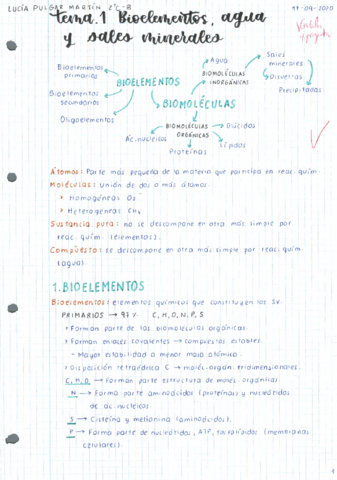 LUCÍA PULGAR MARTÍN 2ºC-B
17-09-2020
tema.1 Bioelementos, agua
y sales minerales
Bioelementos primarios
Bioelementos secundarios
Oligoelementos
BIOELEMENTOS
BIOMOLÉCULAS
Agua
BIOMOLÉCULAS INORGÁNICAS
Sales minerales
Disueltas
Precipitadas
BIOMOLÉCULAS ORGÁNICAS
Glúcidos
Lípidos
Proteínas
Ác. nucleicos
Átomos: Parte más pequeña de la materia que participa en reac. quím.
Moléculas: Unión de dos o más átomos.
Homogéneas O₂
Heterogéneas CH₄
Sustancia pura: no se descompone en otra más simple por
reac. quím. (elementos).
Compuesto: se descompone en otra más simple por reac. quím.
(agua).
1. BIOELEMENTOS
Bioelementos: elementos químicos que constituyen los sv.
PRIMARIOS → 97% C, H, O, N, P, S
Forman parte de las biomoléculas orgánicas.
Forman enlaces covalentes → compuestos estables.
- Mayor estabilidad a menor masa atómica.
Disposición tetraédrica C → moléc. organ. tridimensionales.
C, H, O → Forman parte estructura de moléc. orgánicas
N → Forma parte aminoácidos (proteínas) y nucleótidos
de ác. nucleicos.
S → Cisteína y metionina (aminoácidos).
P → Forma parte de nucleótidos, ATP, fosfolípidos (membranas
celulares).
1